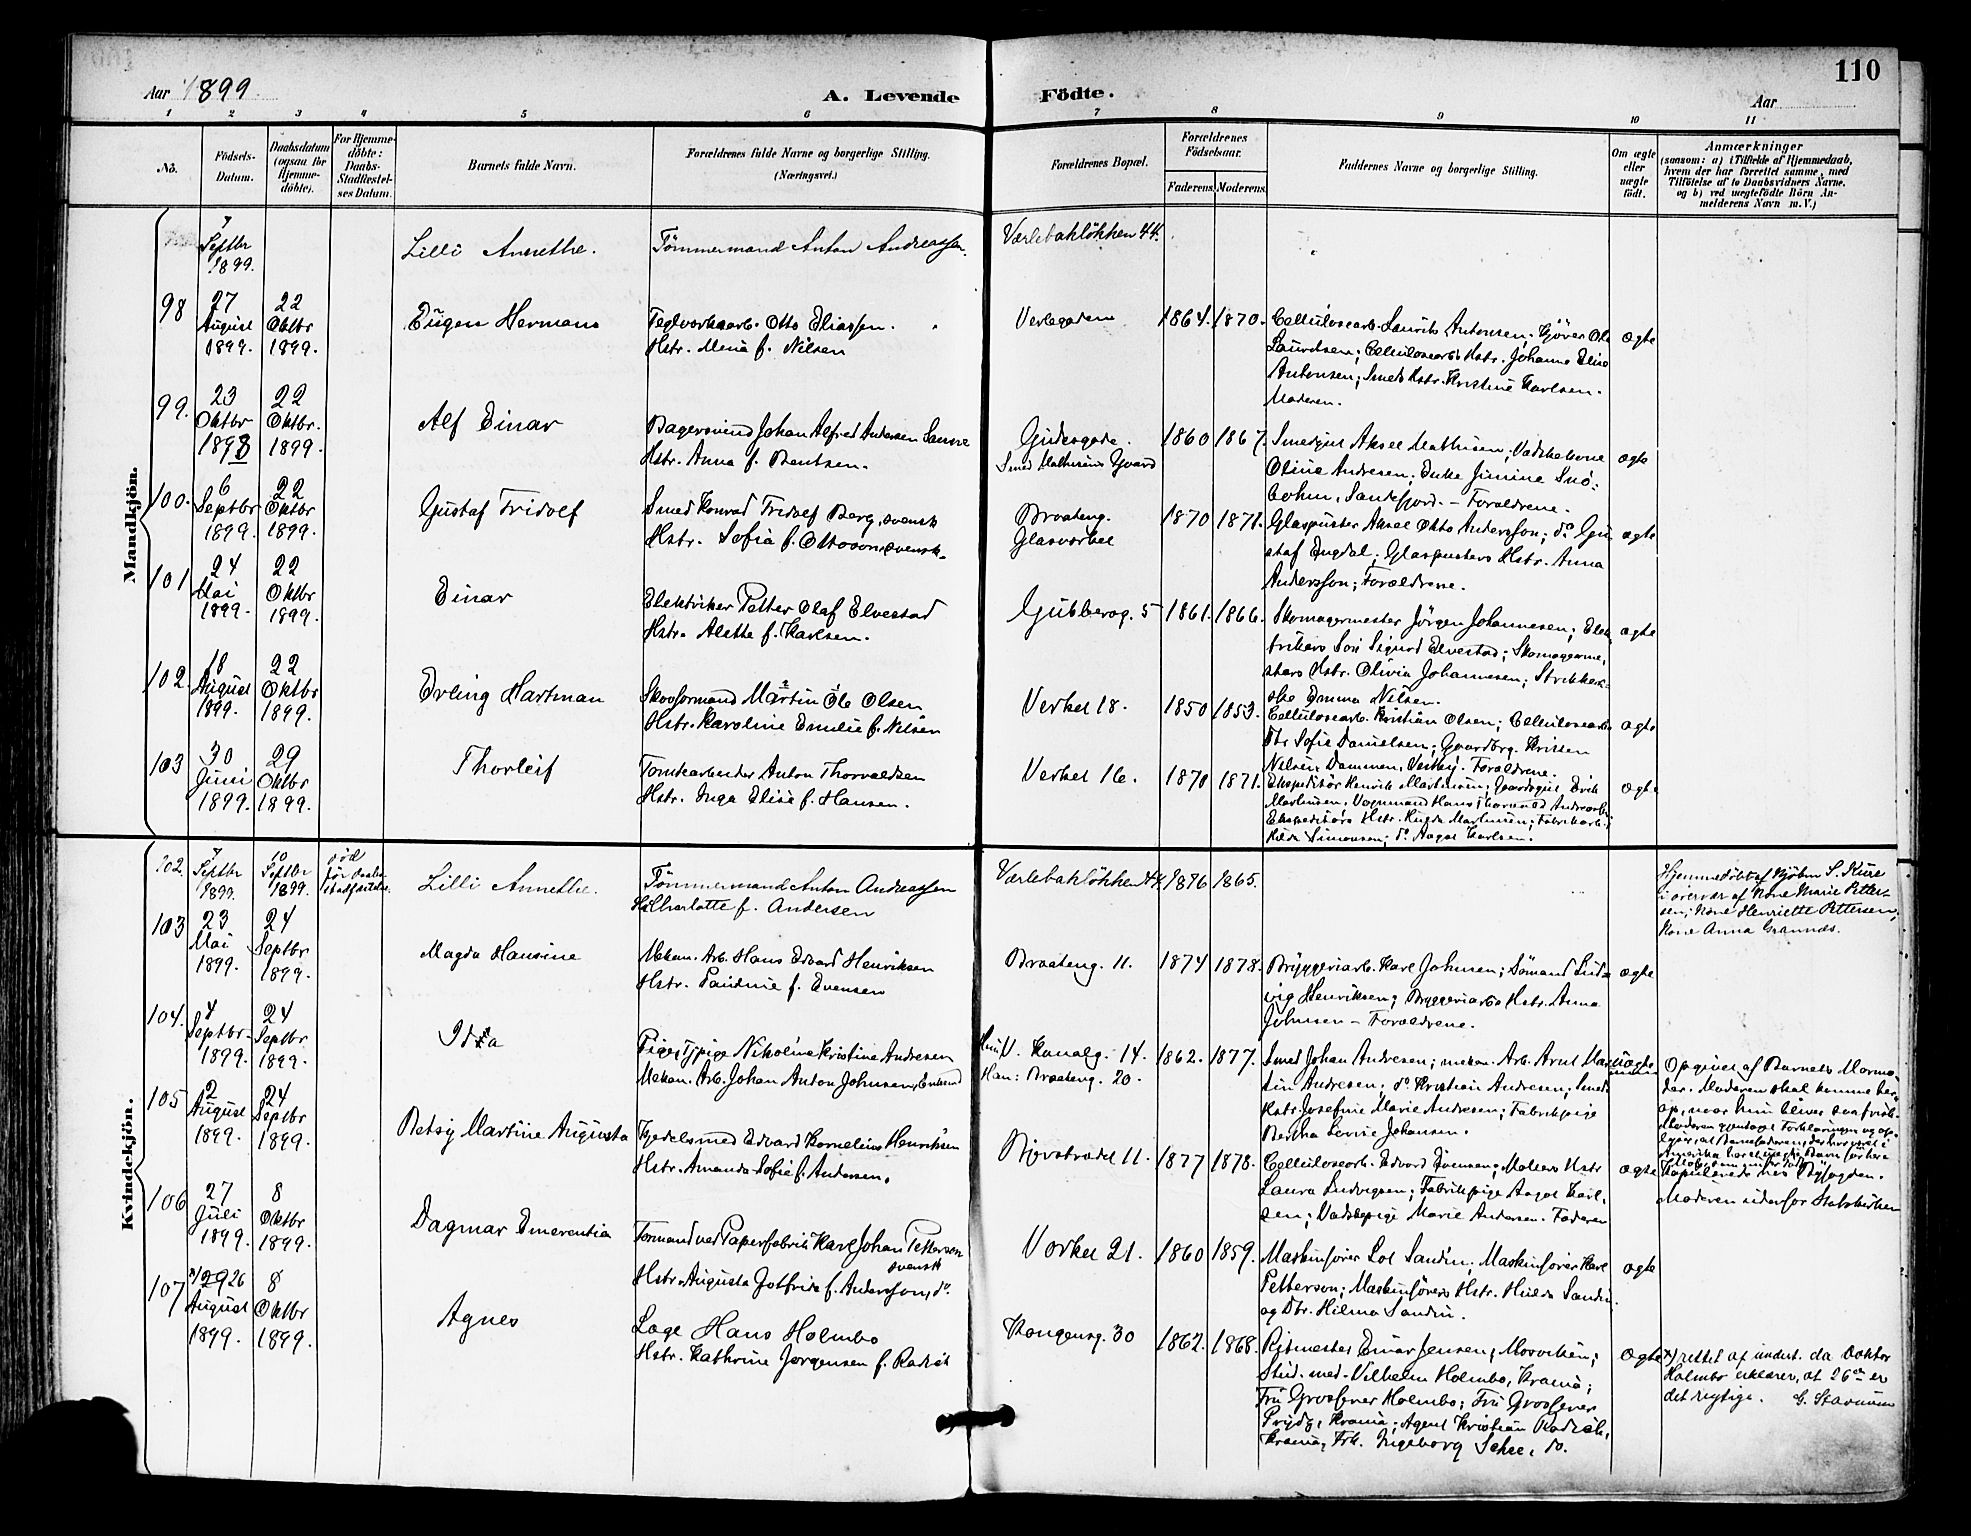 Aar 1899
A. Levende
Födte.
110
Aar
1 2 3 4 5 6 7 8 9 10 11
No.
Födsels-
Datum.
Daabsdatum
(ogsaa for
Hjemme-
döbte).
For Hjemme-
döbte:
Daabs-
Stadfæstel-
ses Datum.
Barnets fulde Navn.
Forældrenes fulde Navne og borgerlige Stilling.
(Næringsvei.)
Forældrenes Bopæl.
Forældrenes
Födselsaar.
Faderens. Moderens.
Faddernes Navne og borgerlige Stilling.
Om ægte
eller
uægte
født.
Anmærkninger
(saasom: a) i Tilfælde af Hjemmedaab,
hvem der har forrettet samme, med
Tilföielse af to Daabsvidners Navne.
og b) ved uægtefödte Börn An-
melderens Navn m. V.)
Mandkjön.
7
Septbr
1899.
Lilli Annethe.
Tömmermand Anton Andreassen.
Værlebaklökken 44.
98
27
August
1899.
22
Oktbr
1899.
Eugen Hermans
Teglverksarb. Otto Eliassen.
Hstr. Mena f. Nilsen
Verlegaden
1864. 1870.
Cellulosearb. Laurits Antonsen; Gjöver Ole
Lauridsen; Cellulosearbs Hstr. Johanne Elise
Antonsen; Smeds Hstr. Kristine Karlsen.
Moderen.
ægte
99.
23
Oktbr
1898
22
Oktbr.
1899.
Alf Einar
Bagersvend Johan Alfred Andersen Sanne
Hstr. Anna f. Bentsen.
Gudesgade.
Smed Mathisens Gaard
1860 1867.
Smedgut Aksel Mathisen; Vadskekone
Oline Andresen; Enke Jimine Snö-
bohm, Sandefjord. - Forældrene.
ægte
100.
6
Septbr
1899.
22
Oktbr
1899.
Gustaf Fridolf
Smed Konrad Fridolf Berg, svensk
Hstr. Sofia f. Ottoson, svensk.
Braateng.
Glasverket
1870 1871.
Glaspuster Aksel Otto Andersson; do Gu
staf Engdal; Glaspusters Hstr. Anna
Andersson; Forældrene.
ægte
101
24
Mai
1899.
22
Oktbr
1899.
Einar
Elektriker Petter Olaf Elvestad
Hstr. Alette f. Karlsen.
Gubberog. 5
1861. 1866.
Skomagermester Jörgen Johannesen; Elek
trikers Sön Sigurd Elvestad; Skomagerme,
sters Hstr. Olivia Johannesen; Strikker-
ske Emma Nilsen.
ægte
102.
18
August
1899.
22
Oktbr
1899.
Erling Hartman
Skovformand Martin Ole Olsen
Hstr. Karoline Emilie f. Nilsen
Verket 18.
1850 1853.
Cellulosearb. Kristian Olsen; Cellulosearbs
Dtr. Sofie Danielsen; Gaardbrg. Kristen
Nilsen, Dammen, Vestby. Forældrene.
ægte
103
30
Juni
1899.
29
Oktbr
1899.
Thorleif
Tomtearbeider Anton Thorvaldsen
Hstr. Inga Elise f. Hansen.
Verket 16.
1870 1871.
Ekspeditör Henrik Martinsen; Gaardsgut Erik
Martinsen; Vognmand Hans Thorvald Andreas
Ekspeditörs Hstr. Hulda Martinsen; Fabrikarb.
Hilda Simonsen; do Aagot Karlsen.
ægte
Kvindekjön.
102
7
Septbr
1899.
10
Septbr
1899.
död
för Daabs
stadfæstelse.
Lilli Annethe.
Tömmermand Anton Andreassen
H. Charlotte f. Andersen
Værlebaklökken 44
1876 1865.
Hjemmedöbt af Bjöbm S. Kure
i overvær af Kone Marie Petter-
sen; Kone Henriette Pettersen,
Kone Anna Grannæs.
103
23
Mai
1899.
24
Septbr
1899.
Magda Hansine
Mekan. Arb. Hans Edvard Henriksen
Hstr. Pauline f. Evensen
Braateng. 11.
1874 1878.
Bryggeriarb. Karl Johnsen; Sömand Lud
vig Henriksen; Bryggeriarbs Hstr. Anna
Johnsen - Forældrene.
ægte
104.
4
Septbr.
1899.
24
Septbr
1899.
Ida
Pige, Tjpige Nikoline Kristine Andresen
Mekan. Arb. Johan Anton Johnsen, Enkemd
Hun: V. Kanalg. 14.
Han: Braateng. 20.
1862. 1877.
Smed Johan Andresen; mekan. Arb. Arnt Mar
tin Andresen; do Kristian Andresen; Smeds
Hstr. Josefine Marie Andresen; Fabrikpige
Bertha Lovise Johansen.
uægte
Opgivet af Barnets Mormo-
der. Moderen skal komme her-
op, naar hun bliver saa frisk.
Moderen gjentaget Forklaringen og op-
lyser, at Barnefaderen, der har været i
Amerika har et uægte Barn för her
105
2
August
1899.
24
Septbr
1899.
Betsy Martine Augusta
Kjedelsmed Edvard Kornelius Henriksen
Hstr. Amanda Sofie f. Andersen.
Bjerstrædet 11.
1877 1878.
Cellulosearb. Edvard Evensen; Malers Hstr
Laura Ludvigsen; Fabrikpige Aagot Karl,
sen; Vadskepige Marie Andersen. Faderen
ægte
Kopulerede hos Byfogden.
Moderen udenfor Statskirken
106
27
Juli
1899.
8
Oktbr
1899.
Dagmar Emerentia
Formand ved Papirfabrik Karl Johan Petterson
svensk
Hstr. Augusta Gotfrida f. Andersson, do.
Verket 21.
1860 1859.
Maskinförer Lol Sandin; Maskinförer Karl
Petterson; Maskinförers Hstr. Hulda Sandin
og Dtr. Hilma Sandin.
ægte
107
x) 29 26
August
1899.
8
Oktbr
1899.
Agnes
Læge Hans Holmbo
Hstr. Kathrine Jörgensen f. Radich
Kongensg. 30
1862. 1868.
Ritmester Einar Jensen, Mosviken;
Stud. med. Vilhelm Holmbo, Krania;
Fru Grosserer Holmbo; Fru Grosserer
Prydz, Krania; Agent Kristian Radich,
Krania, Frk. Ingeborg Schee, do.
ægte
x) rettet af undert. da Doktor
Holmbo erklærer, at 26de er
det rigtige. G. Stavnum